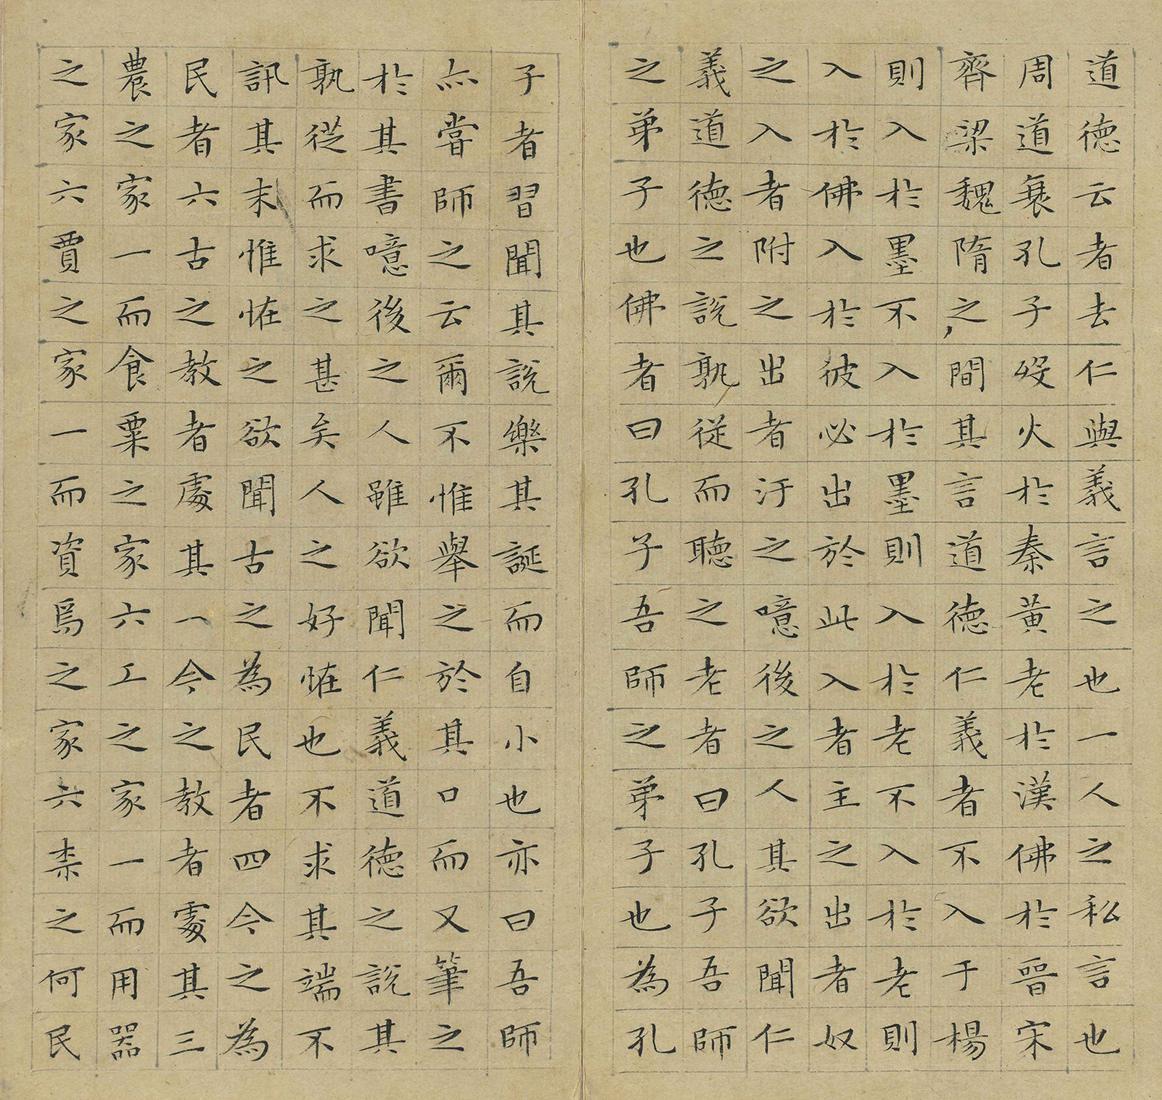 道德云者去仁與義言之也一人之私言也
周道衰孔子歿火於秦黃老於漢佛於晉宋
齊梁魏隋之間其言道德仁義者不入于楊
則入於墨不入於墨則入於老不入於老則
入於佛入於彼必出於此入者主之出者奴
之入者附之出者汙之噫後之人其欲聞仁
義道德之說孰從而聽之老者曰孔子吾師
之弟子也佛者曰孔子吾師之弟子也為孔
子者習聞其說樂其誕而自小也亦曰吾師
亦嘗師之云爾不惟舉之於其口而又筆之
於其書噫後之人雖欲聞仁義道德之說其
孰從而求之甚矣人之好恠也不求其端不
訊其末惟恠之欲聞古之為民者四今之為
民者六古之教者處其一今之教者處其三
農之家一而食粟之家六工之家一而用器
之家六賈之家一而資焉之家六柰之何民